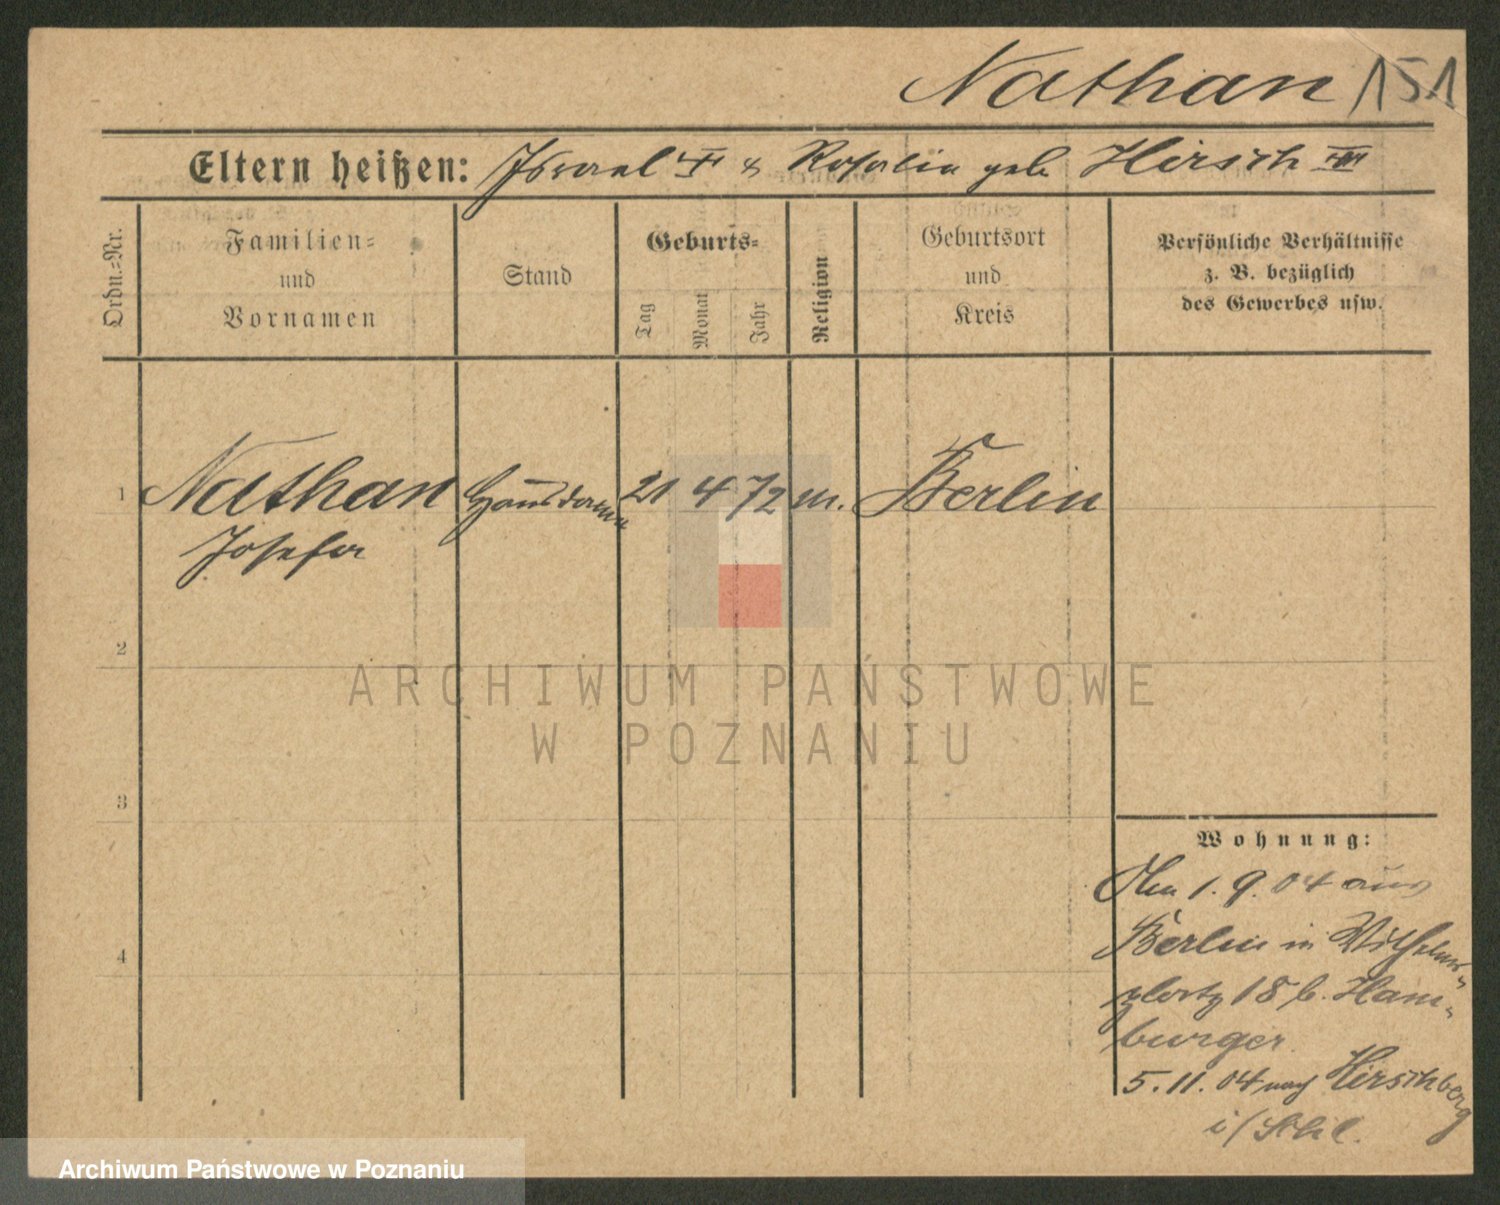 Nathan 151
Eltern heißen: Israel & Rosalie geb. Hirsch
Ordn.=Nr.
Familien=
und
Vornamen
Stand
Geburts=
Tag
Monat
Jahr
Religion
Geburtsort
und
Kreis
Persönliche Verhältnisse
z. B. bezüglich
des Gewerbes usw.
1 Nathan Hausdame 21 4 72 m. Berlin
Josefa
2
3
4
Wohnung:
Am 1.9.04 aus
Berlin in Wilhelms-
platz 18 b. Ham-
burger
5.11.04 nach Hirschberg
i/Schl.
ARCHIWUM PAŃSTWOWE
W POZNANIU
Archiwum Państwowe w Poznaniu